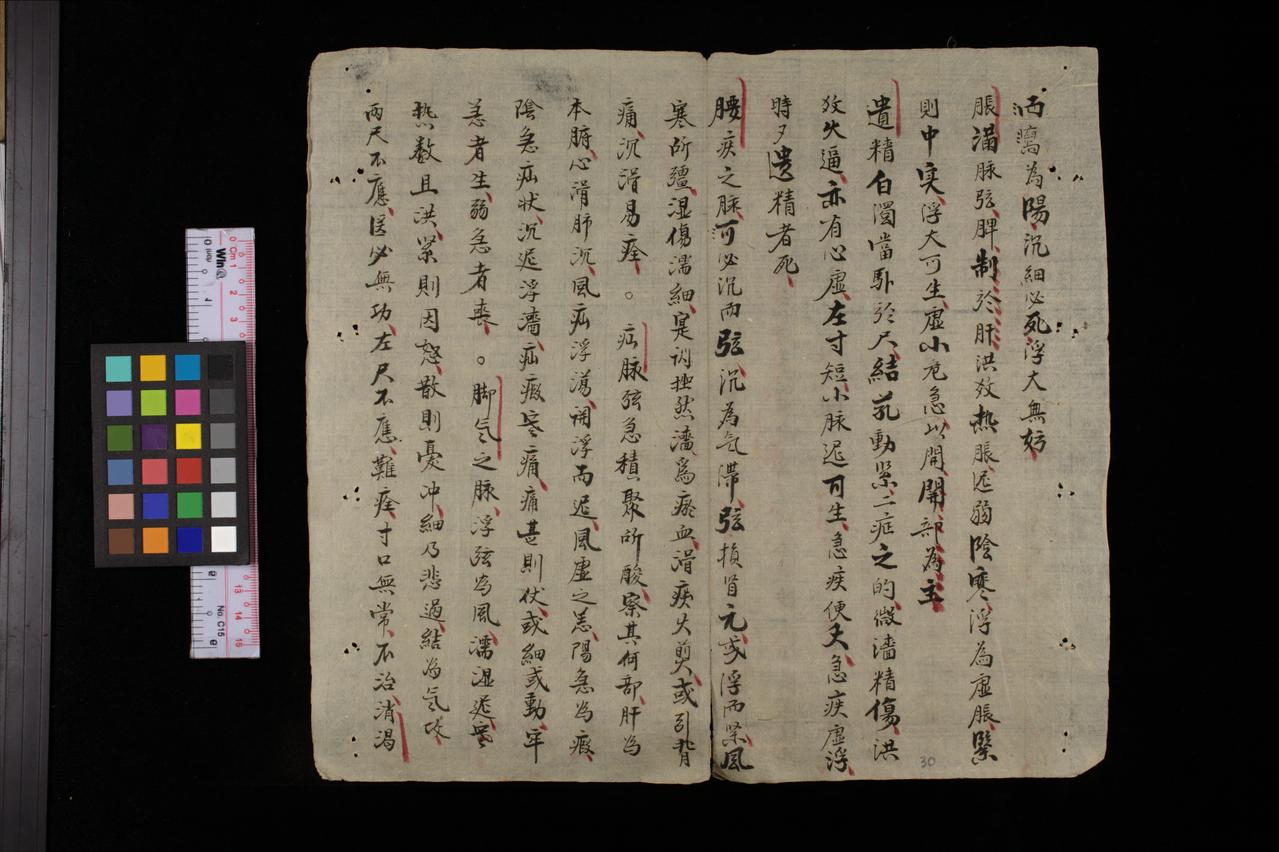 为陽沉細必死浮大無妨
脹滿脉弦脾制於肝洪效热脹迟弱陰寒浮為虛脹緊
則中实浮大可生虛小危急以開開部為主
遺精白濁當卧於尺結芤動緊二症之的微濇精傷洪
效火逼亦有心虛左寸短小脉迟可生急疾便夭急疾虛浮
時夕遺精者死
腰疾之脉可必沉而弦沉為气滞弦損肾元或浮而緊風
寒所殭湿傷濡細寔挫然濇為瘀血滑痰火煎或引背
痛沉滑易痊。疝脉弦急積聚所酸察其何部肝为
本腑心滑肺沉風疝浮蕩浮而迟風虛之恙陽急為瘕
陰急疝状沉迟浮濇疝瘕寒痛痛甚則伏或細或動牢
急者生弱急者丧。脚气之脉浮弦為風濡湿迟寒
热数且洪緊則因怒散則憂冲細乃悲過結為气攻
两尺不應医必無功左尺不應難痊寸口無常不治消渴
30